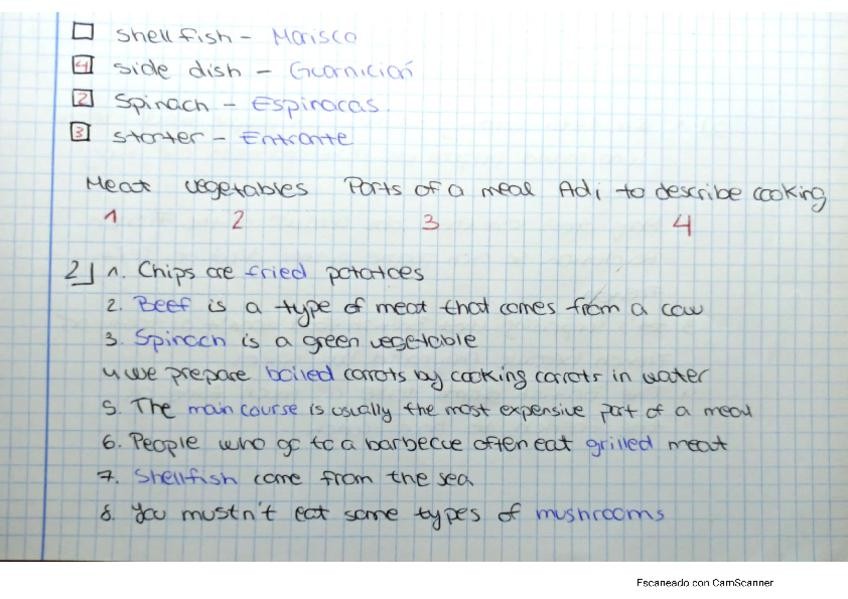 shellfish - Marisco
4 side dish - Guarnición
2 Spinach - Espinacas.
3 starter - Entrante
Meat vegetables Parts of a meal Adj to describe cooking
1 2 3 4
2 1. Chips are fried potatoes
2. Beef is a type of meat that comes from a cow
3. Spinach is a green vegetable
4 we prepare boiled carrots by cooking carrots in water
5. The main course is usually the most expensive part of a meal
6. People who go to a barbecue often eat grilled meat
7. Shellfish come from the sea
8. You mustn't eat some types of mushrooms
Escaneado con CamScanner